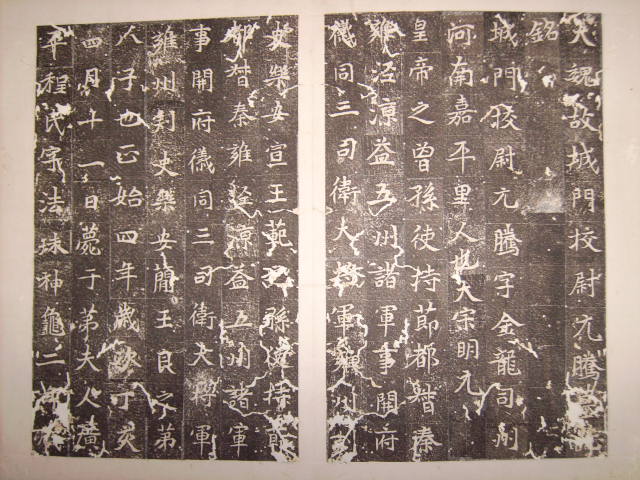 大魏故城門挍尉元騰墓誌
銘
城門挍尉元騰字金龍司州
河南嘉平里人也大宗明元
皇帝之曾孫使持節都督秦
雍涇涼益五州諸軍事開府
儀同三司衛大將軍雍州刾
史樂安宣王範之孫使持節
都督秦雍涇涼益五州諸軍
事開府儀同三司衛大將軍
雍州刾史樂安簡王良之弟
人子也正始四年歲次丁亥
四月十一日薨于第夫人廣
平程氏字法珠神龜二